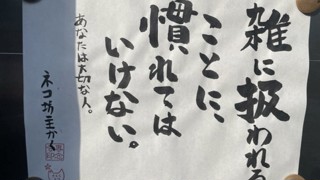 雑に扱われる
ことに、
慣れては
いけない。
あなたは大切な人。
ネコ坊主かく